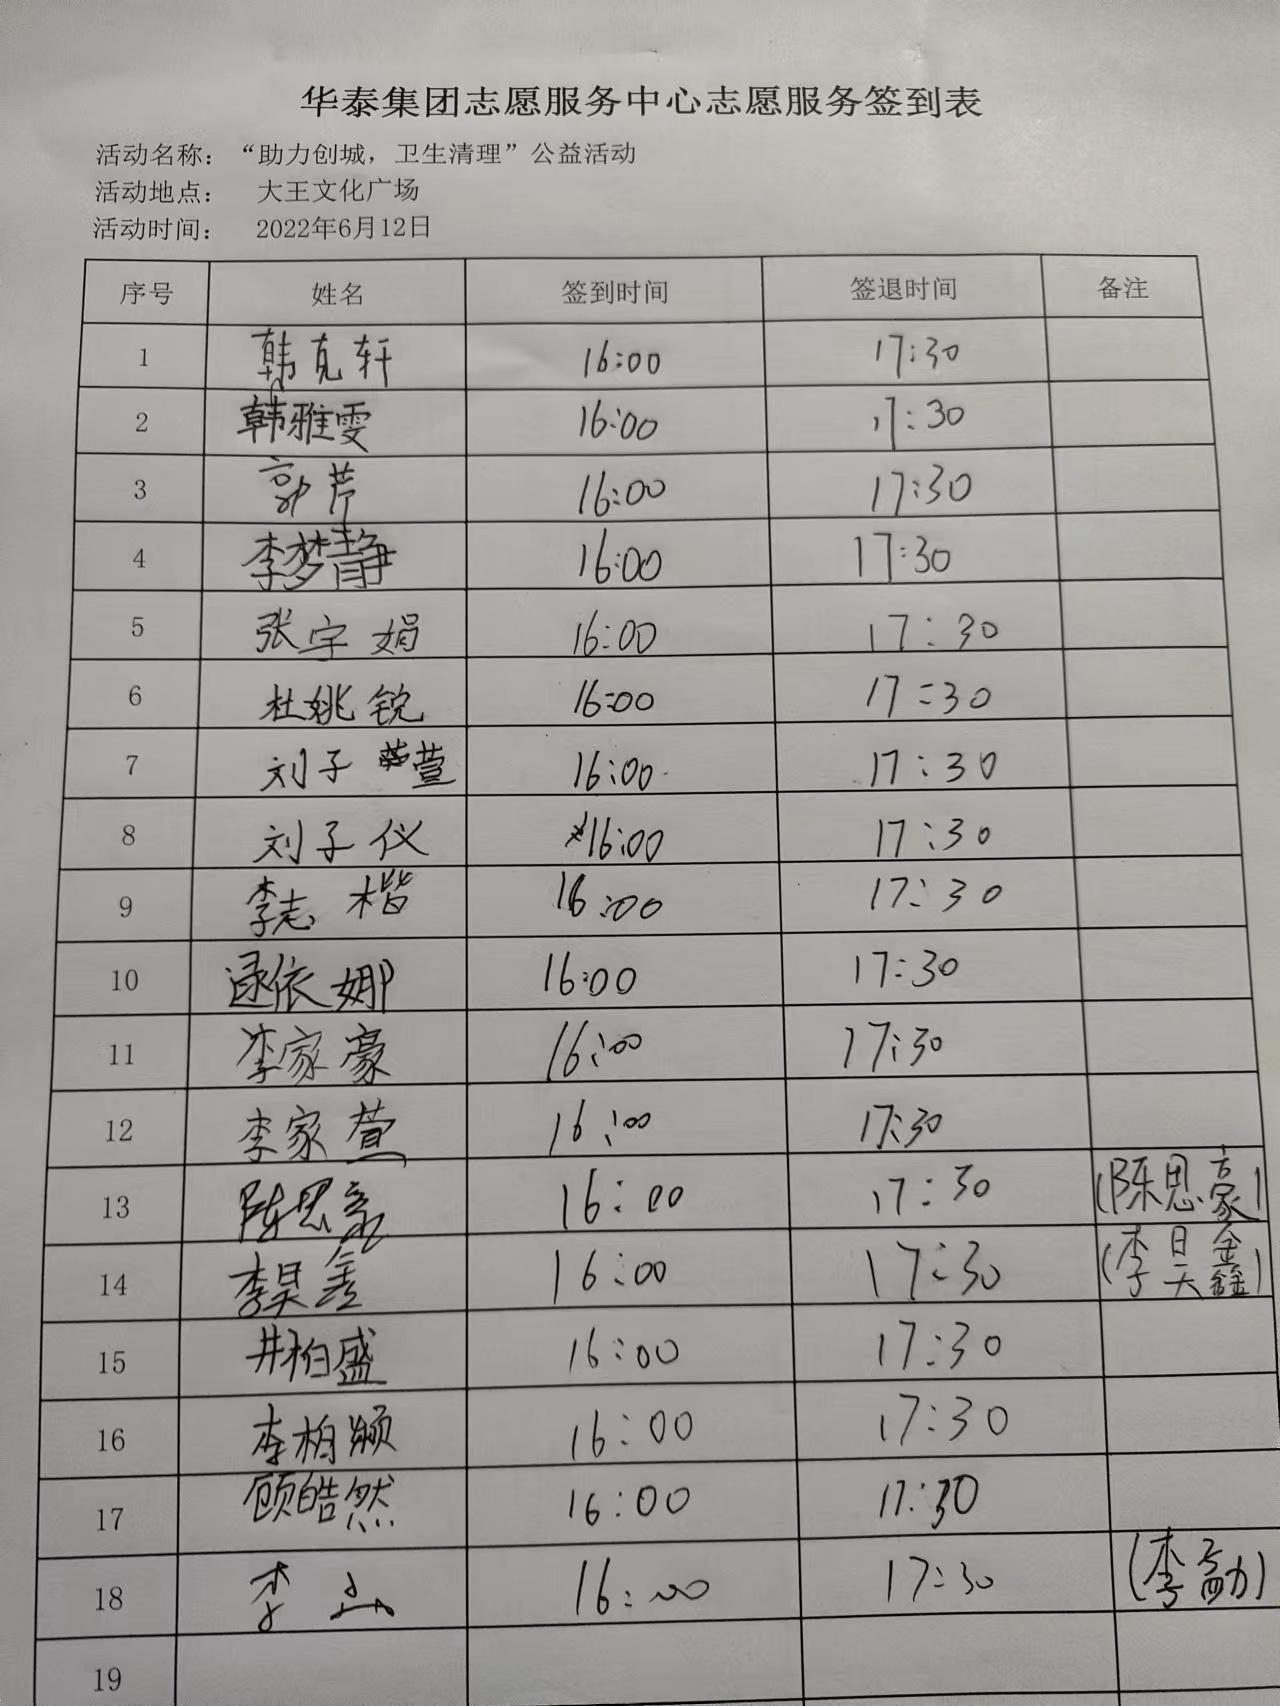 华泰集团志愿服务中心志愿服务签到表
活动名称：“助力创城，卫生清理”公益活动
活动地点： 大王文化广场
活动时间： 2022年6月12日
序号 姓名 签到时间 签退时间 备注
1 韩克轩 16:00 17:30
2 韩雅雯 16:00 17:30
3 郭芹 16:00 17:30
4 李梦静 16:00 17:30
5 张宇娟 16:00 17:30
6 杜姚锐 16:00 17:30
7 刘子萱 16:00 17:30
8 刘子仪 16:00 17:30
9 李志楷 16:00 17:30
10 逯依娜 16:00 17:30
11 李家豪 16:00 17:30
12 李家萱 16:00 17:30
13 陈思豪 16:00 17:30 (陈思豪)
14 李昊鑫 16:00 17:30 (李昊鑫)
15 井柏盛 16:00 17:30
16 李柏颖 16:00 17:30
17 顾皓然 16:00 17:30
18 李 16:00 17:30 (李
19